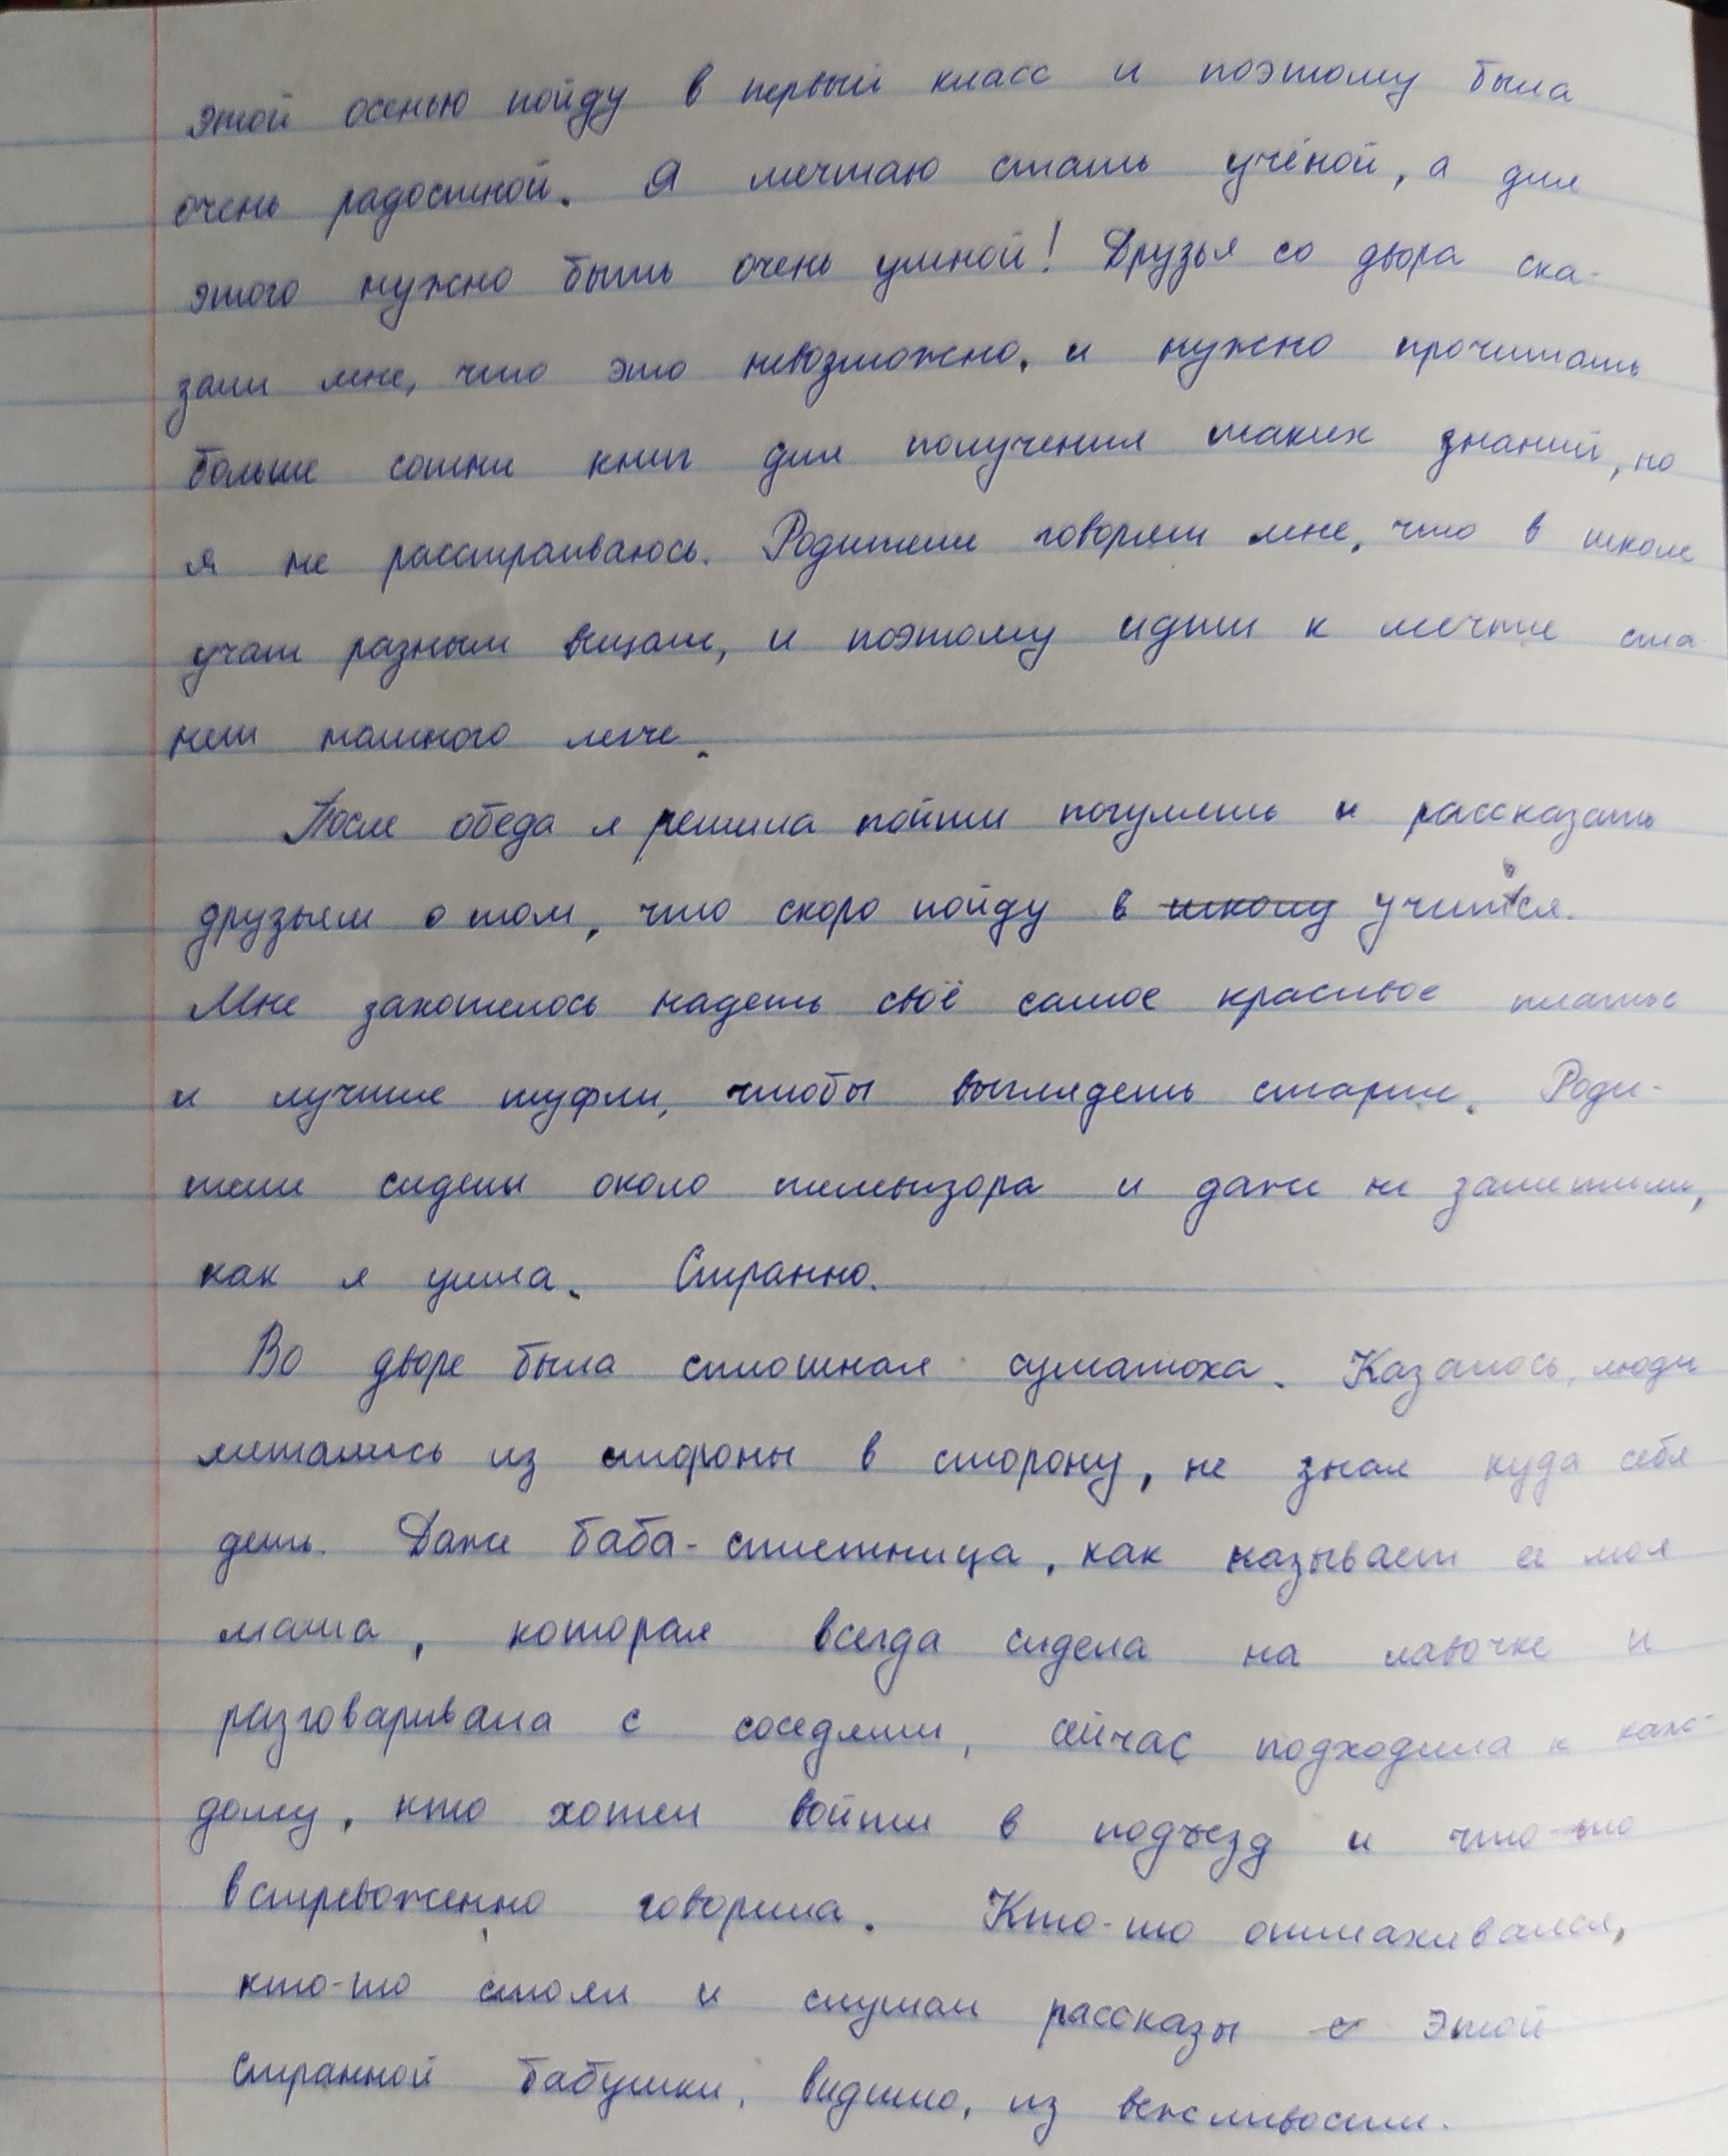 этой осенью пойду в первый класс и поэтому была
очень радостной. Я мечтаю стать учёной, а для
этого нужно быть очень умной! Друзья со двора ска-
зали мне, что это невозможно, и нужно прочитать
больше сотни книг для получения таких знаний, но
я не расстраиваюсь. Родители говорят мне, что в школе
учат разным вещам, и поэтому идти к мечте ста
нет намного легче.
После обеда я решила пойти погулять и рассказать
друзьям о том, что скоро пойду в школу учиться.
Мне захотелось надеть своё самое красивое платье
и лучшие туфли, чтобы выглядеть старше. Роди-
тели сидели около телевизора и даже не заметили,
как я ушла. Странно.
Во дворе была сплошная суматоха. Казалось, люди
метались из стороны в сторону, не зная куда себя
деть. Даже баба-сплетница, как называет её моя
мама, которая всегда сидела на лавочке и
разговаривала с соседями, сейчас подходила к каж-
дому, кто хотел войти в подъезд и что-то
встревоженно говорила. Кто-то отмахивался,
кто-то стоял и слушал рассказы с этой
странной бабушки, видимо, из вежливости.